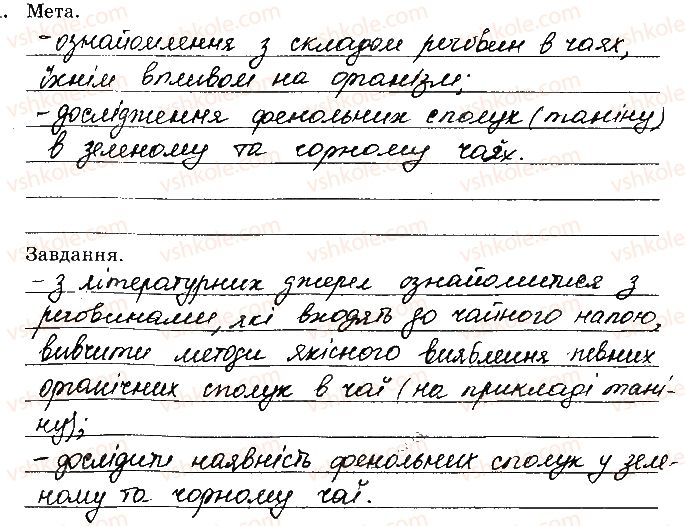 Мета.
- ознайомлення з складом речовин в чаях,
їхнім впливом на організм;
- дослідження фенольних сполук (таніну)
в зеленому та чорному чаях.
Завдання.
- з літературних джерел ознайомитися з
речовинами, які входять до чайного напою,
вивчити методи якісного виявлення певних
органічних сполук в чаї (на прикладі тані-
ну);
- дослідити наявність фенольних сполук у зеле-
ному та чорному чаї.